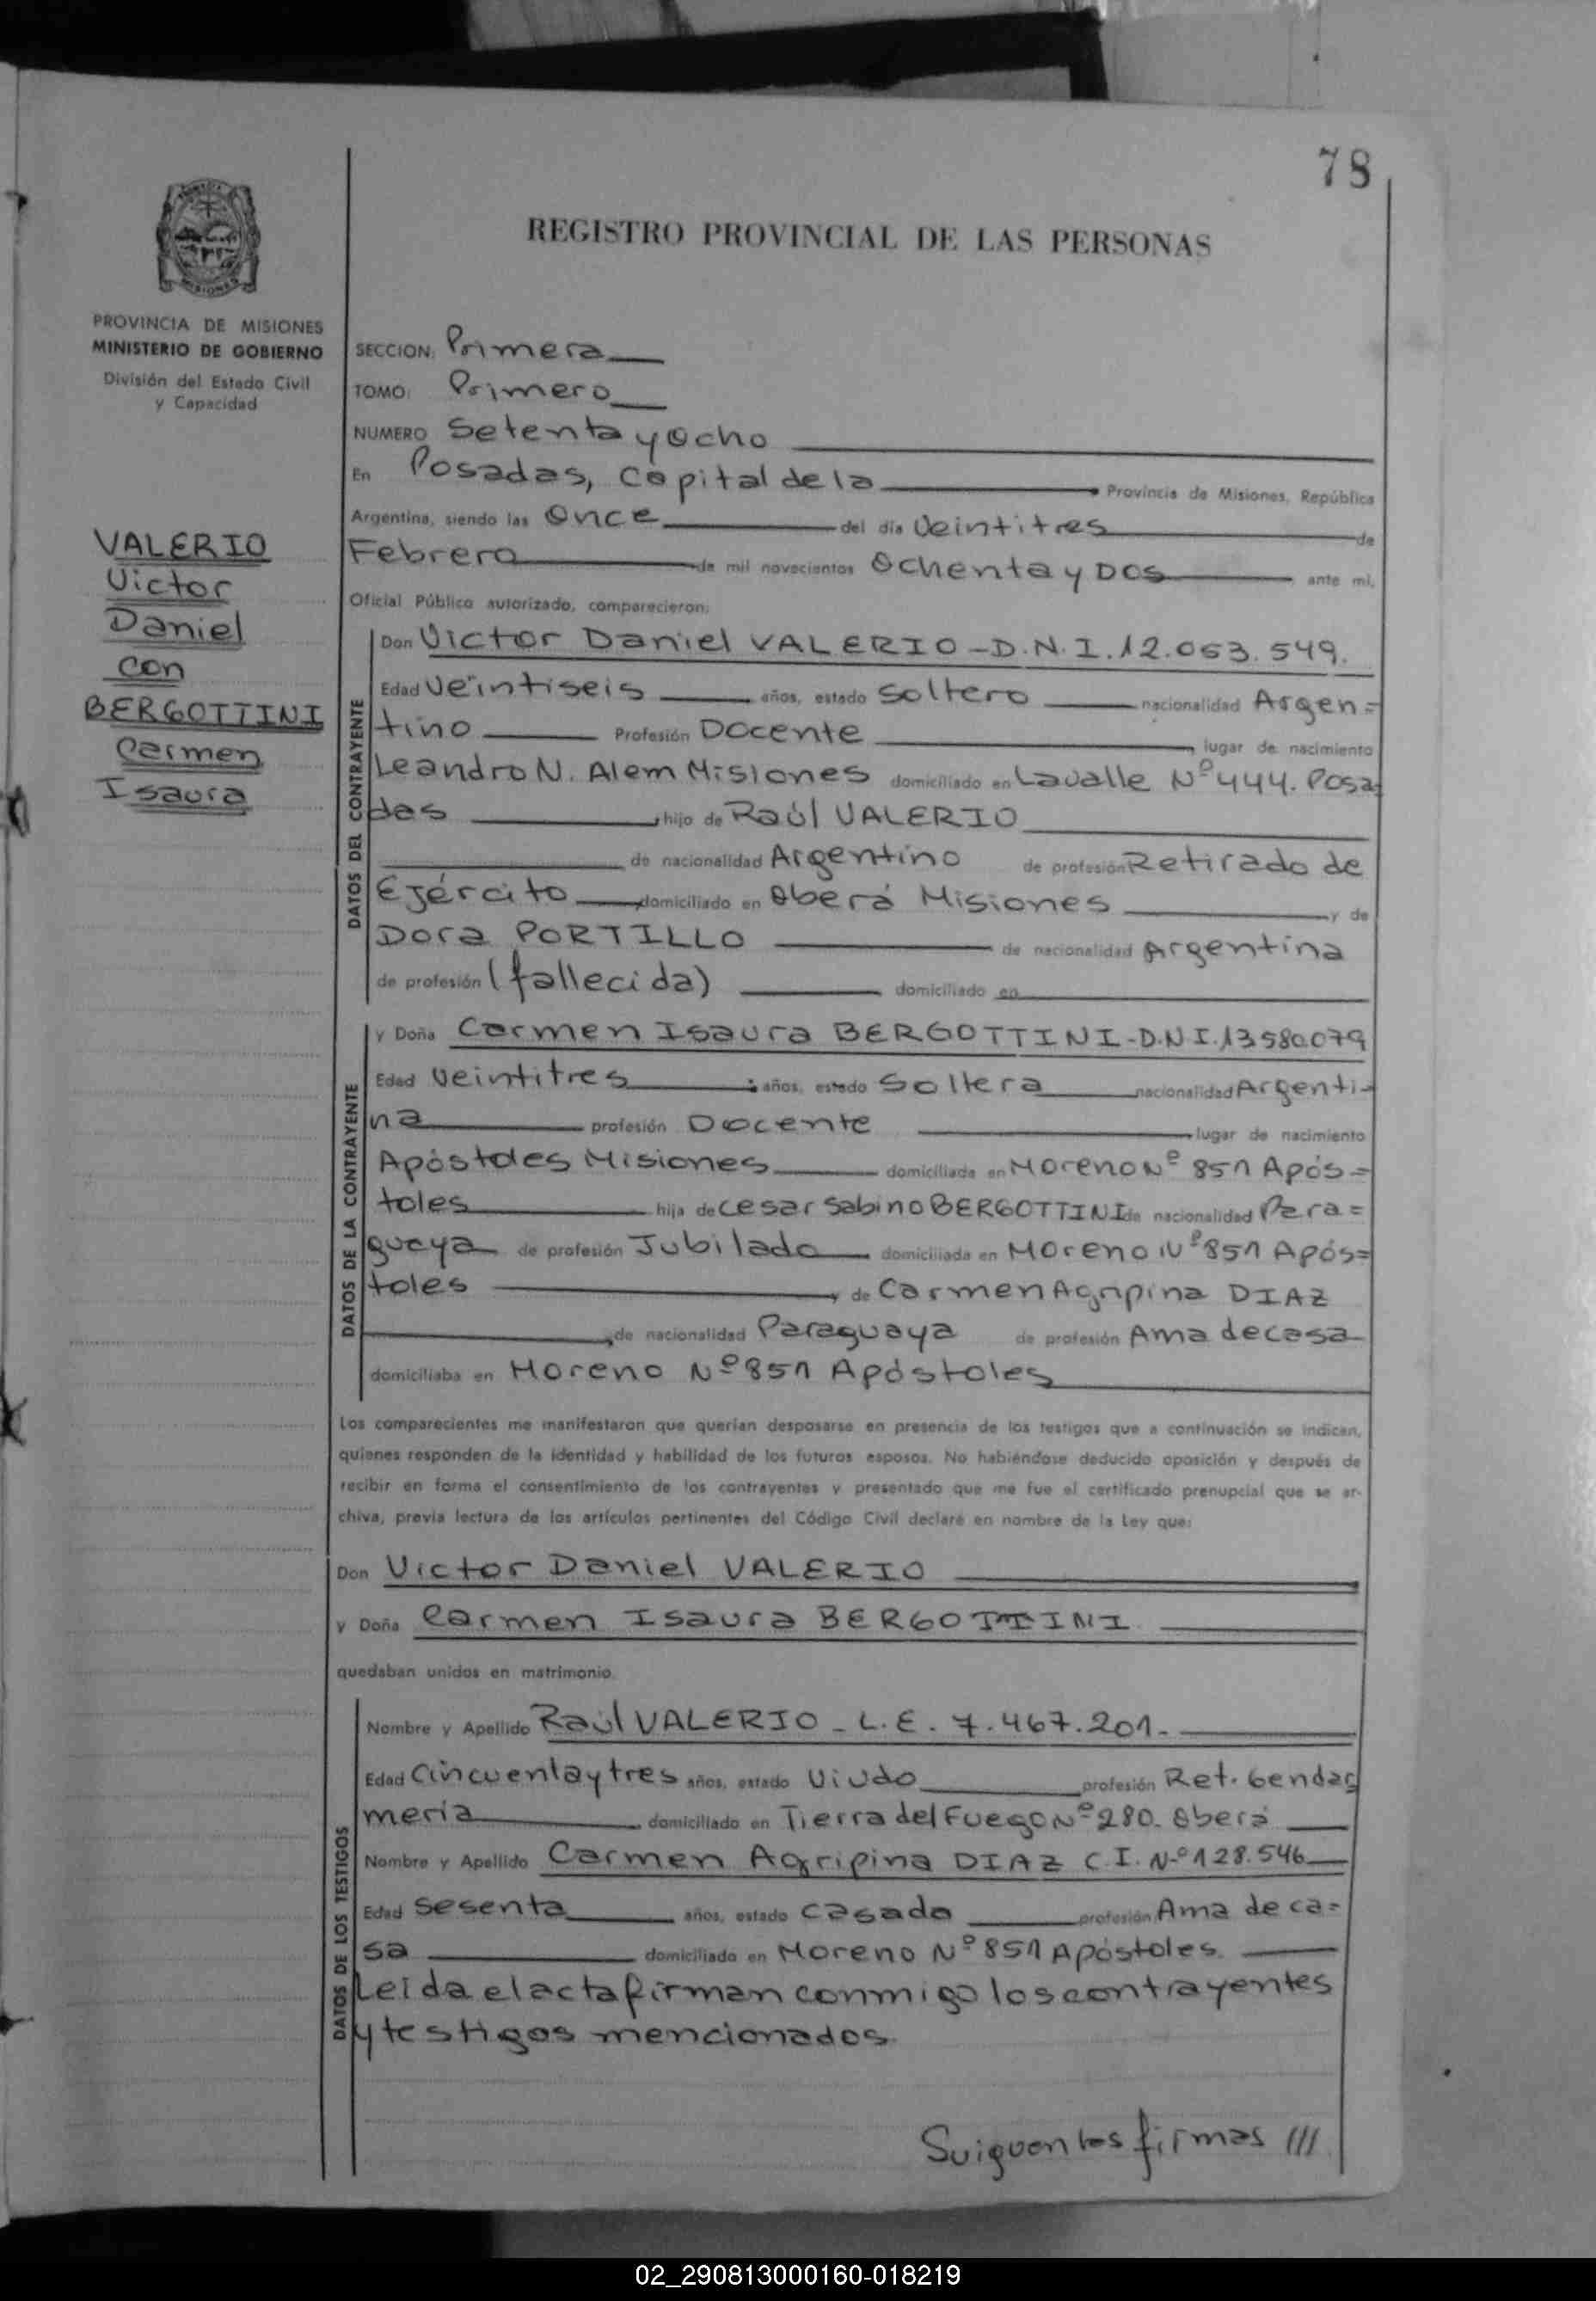 78
REGISTRO PROVINCIAL DE LAS PERSONAS
PROVINCIA DE MISIONES
MINISTERIO DE GOBIERNO
División del Estado Civil
y Capacidad
VALERIO
Victor
Daniel
con
BERGOTTINI
Carmen
Isaura
SECCION: Primera
TOMO: Primero
NUMERO Setenta y Ocho
En Posadas, Capital de la Provincia de Misiones, República
Argentina, siendo las Once del día Veintitres de
Febrero de mil novecientos Ochenta y Dos ante mi,
Oficial Público autorizado, comparecieron:
DATOS DEL CONTRAYENTE
Don Victor Daniel VALERIO - D.N.I. 12.053.549.
Edad Veintiseis años, estado Soltero nacionalidad Argen=
tino Profesión Docente lugar de nacimiento
Leandro N. Alem Misiones domiciliado en Lavalle Nº 444. Posa
das hijo de Raúl VALERIO
de nacionalidad Argentino de profesión Retirado de
Ejército domiciliado en Oberá Misiones y de
Dora PORTILLO de nacionalidad Argentina
de profesión (fallecida) domiciliado en
DATOS DE LA CONTRAYENTE
y Doña Carmen Isaura BERGOTTINI - D.N.I. 13.580.079
Edad Veintitres años, estado Soltera nacionalidad Argenti-
na profesión Docente lugar de nacimiento
Apóstoles Misiones domiciliada en Moreno Nº 851 Após=
toles hija de Cesar Sabino BERGOTTINI de nacionalidad Para=
guaya de profesión Jubilado domiciliada en Moreno Nº 851 Após=
toles y de Carmen Agripina DIAZ
de nacionalidad Paraguaya de profesión Ama de casa
domiciliaba en Moreno Nº 851 Apóstoles
Los comparecientes me manifestaron que querían desposarse en presencia de los testigos que a continuación se indican,
quienes responden de la identidad y habilidad de los futuros esposos. No habiéndose deducido oposición y después de
recibir en forma el consentimiento de los contrayentes y presentado que me fue el certificado prenupcial que se ar-
chiva, previa lectura de los artículos pertinentes del Código Civil declaré en nombre de la Ley que:
Don Victor Daniel VALERIO
y Doña Carmen Isaura BERGOTTINI
quedaban unidos en matrimonio.
DATOS DE LOS TESTIGOS
Nombre y Apellido Raúl VALERIO - L.E. 7.467.201.-
Edad Cincuenta y tres años, estado Viudo profesión Ret. Gendar
mería domiciliado en Tierra del Fuego Nº 280. Oberá
Nombre y Apellido Carmen Agripina DIAZ C.I. Nº 128.546
Edad Sesenta años, estado Casada profesión Ama de ca=
sa domiciliado en Moreno Nº 851 Apóstoles.
Leida el acta firman conmigo los contrayentes
y testigos mencionados.
Suiguen las firmas ///
02_290813000160-018219